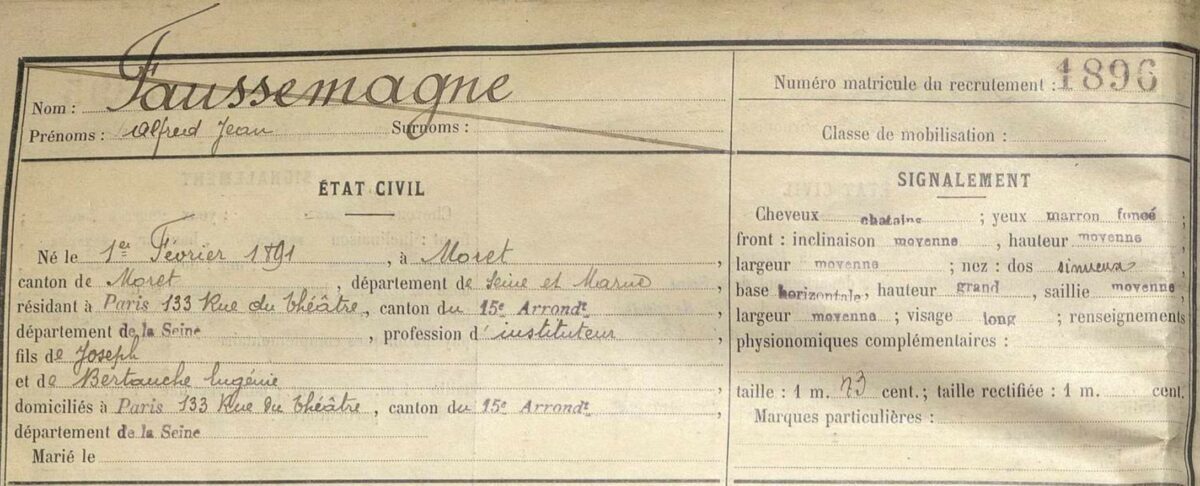 Nom : Faussemagne
Prénoms : Alfred Jean Surnoms :
Numéro matricule du recrutement : 1896
Classe de mobilisation :
ÉTAT CIVIL
Né le 1er Février 1891, à Moret,
canton de Moret, département de Seine et Marne
résidant à Paris 133 Rue du Théâtre, canton du 15e Arrondt
département de la Seine, profession d'instituteur,
fils de Joseph
et de Bertauche Eugénie,
domiciliés à Paris 133 Rue du Théâtre, canton du 15e Arrondt
département de la Seine
Marié le
SIGNALEMENT
Cheveux chatains ; yeux marron foncé
front : inclinaison moyenne, hauteur moyenne
largeur moyenne ; nez : dos sinueux,
base horizontale, hauteur grand, saillie moyenne,
largeur moyenne ; visage long ; renseignements
physionomiques complémentaires :
taille : 1 m. 73 cent. ; taille rectifiée : 1 m. cent.
Marques particulières :